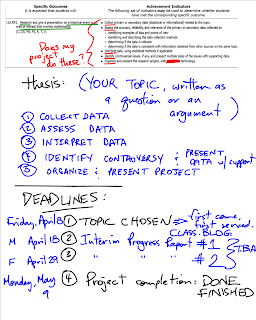 Specific Outcomes
It is expected that students will:
Achievement Indicators
The following set of indicators may be used to determine whether students
have met the corresponding specific outcome.
Research and give a presentation on a historical event or an
area of interest that involves mathematics.
Collect primary or secondary data (statistical or informational) related to the topic.
Assess the accuracy, reliability, and relevance of the primary or secondary data collected by
identifying examples of bias and points of view
identifying and describing the data collection methods
determining if the data is relevant
determining if the data is consistent with information obtained from other sources on the same topic.
Interpret data, using statistical methods if applicable.
Identify controversial issues, if any, and present multiple sides of the issues with supporting data.
Organize and present the research project, with technology.
Does my
project
do these?
thesis: (YOUR TOPIC, written as
a question or an
argument)
1 COLLECT DATA
2 ASSESS DATA
3 INTERPRET DATA
4 IDENTIFY CONTROVERSY & PRESENT
DATA w/ support
5 ORGANIZE & PRESENT PROJECT
DEADLINES:
Friday, April 8 1 TOPIC CHOSEN => first come,
first served.
CLASS BLOG
M April 18 2 Interim Progress Report #1
F April 29 3 " " " #2
T.B.A
Monday, May
9
4 Project completion: DONE
FINISHED